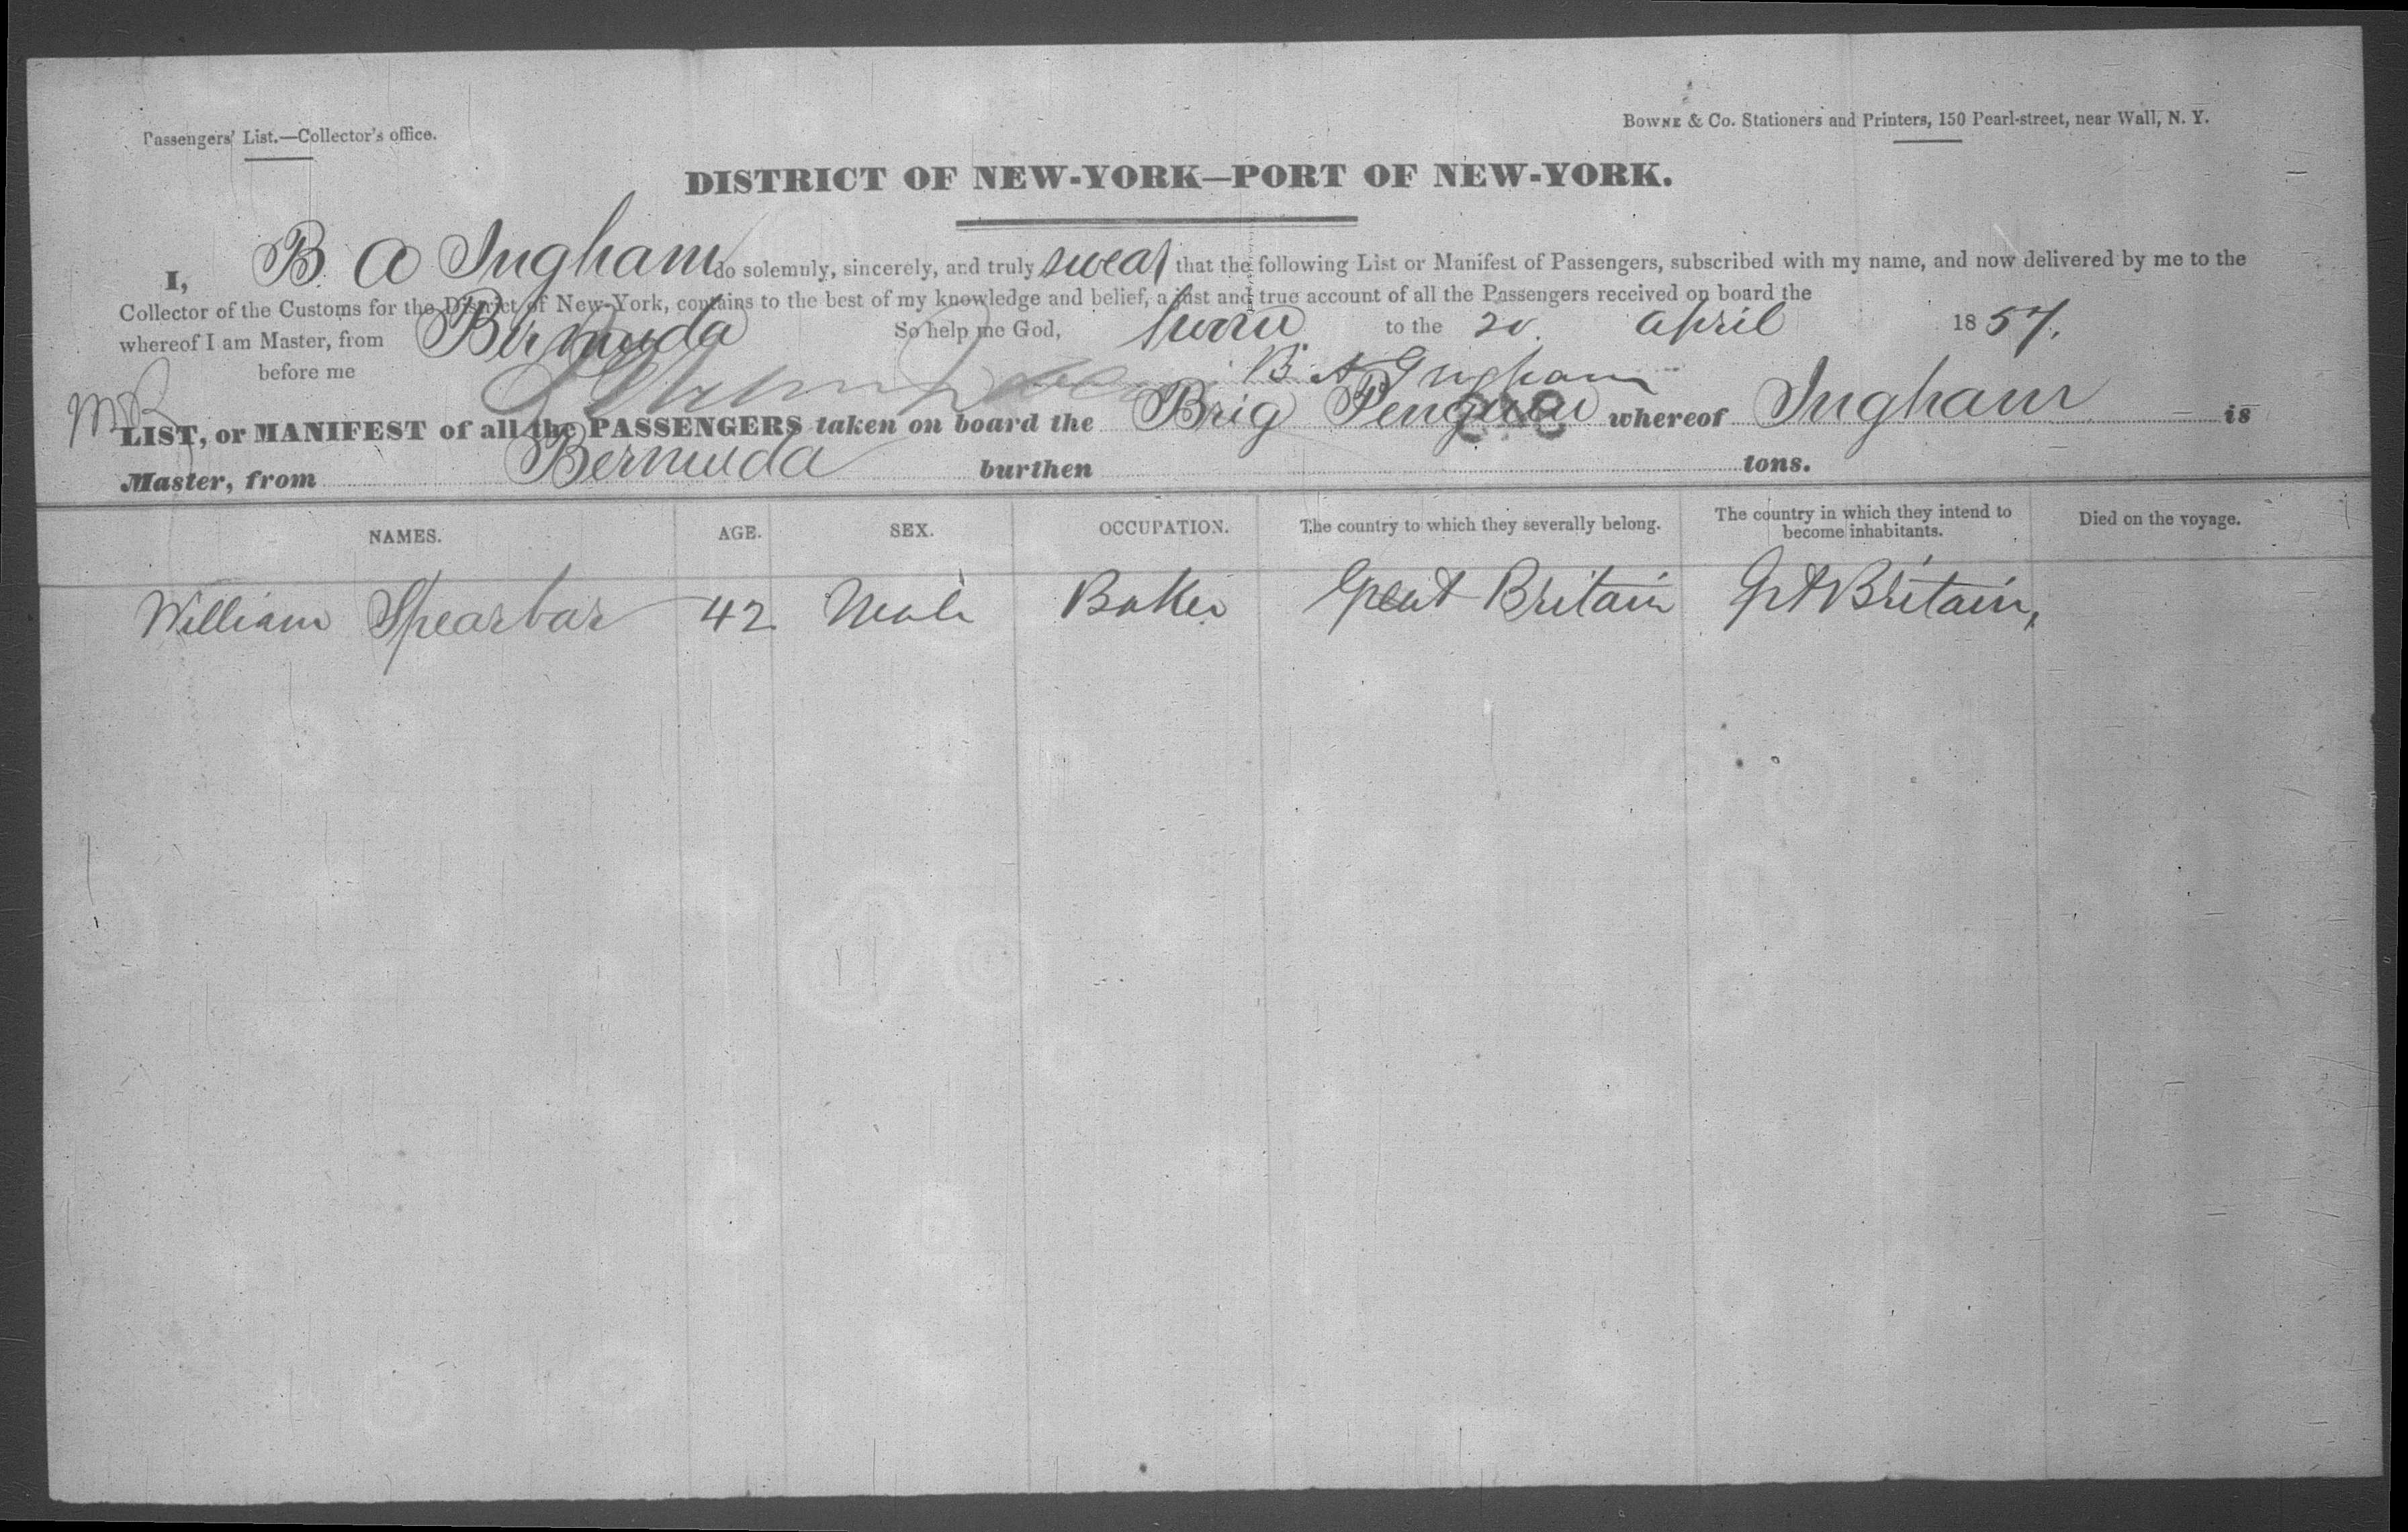 Passengers' List.—Collector's office.
Bowne & Co. Stationers and Printers, 150 Pearl-street, near Wall, N. Y.
DISTRICT OF NEW-YORK—PORT OF NEW-YORK.
I, B. A Ingham do solemnly, sincerely, and truly swear that the following List or Manifest of Passengers, subscribed with my name, and now delivered by me to the
Collector of the Customs for the District of New-York, contains to the best of my knowledge and belief, a just and true account of all the Passengers received on board the
whereof I am Master, from Bermuda So help me God, Sworn to the 20. april 1857.
before me B A Ingham
LIST, or MANIFEST of all the PASSENGERS taken on board the Brig Penguin whereof Ingham is
Master, from Bermuda burthen tons.
NAMES. AGE. SEX. OCCUPATION. The country to which they severally belong. The country in which they intend to become inhabitants. Died on the voyage.
William Spearbar 42 Male Baker Great Britain Grt Britain,